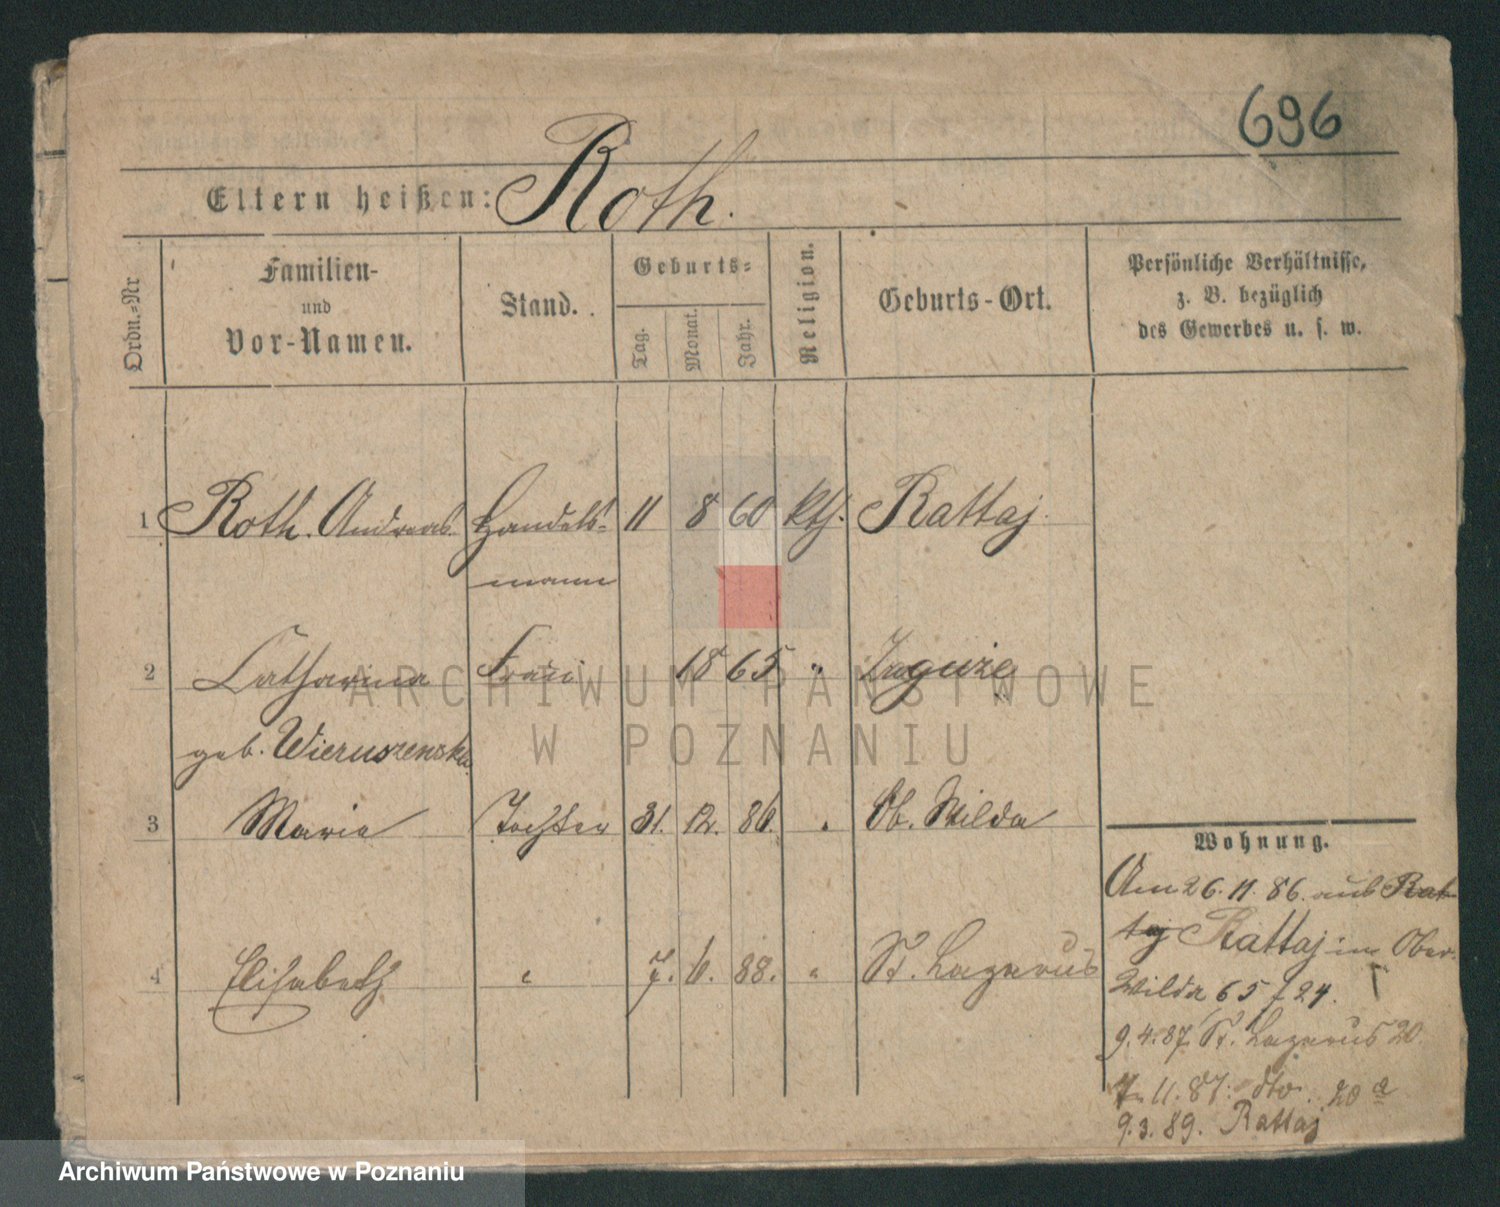 696
Eltern heißen: Roth.
Ordn.-Nr
Familien-
und
Vor-Namen.
Stand.
Geburts-
Tag.
Monat.
Jahr.
Religion.
Geburts-Ort.
Persönliche Verhältnisse,
z. B. bezüglich
des Gewerbes u. s. w.
1 Roth. Andreas Handels- 11 8 60 kth. Rattaj.
mann
2 Catharina Frau 18 65 "
geb. Wieruszewska
3 Maria Tochter 31. 12. 86. " Ob. Wilda
4 Elisabeth " 7. 6. 88. " St. Lazarus
Wohnung.
Am 26. 11. 86. aus Rat
taj Rattaj in Ober-
Wilda 65 / 24.
9. 4. 87. St. Lazarus 20.
7. 11. 87. dto. 20 a
9. 3. 89. Rattaj
ARCHIWUM PAŃSTWOWE
W POZNANIU
Archiwum Państwowe w Poznaniu